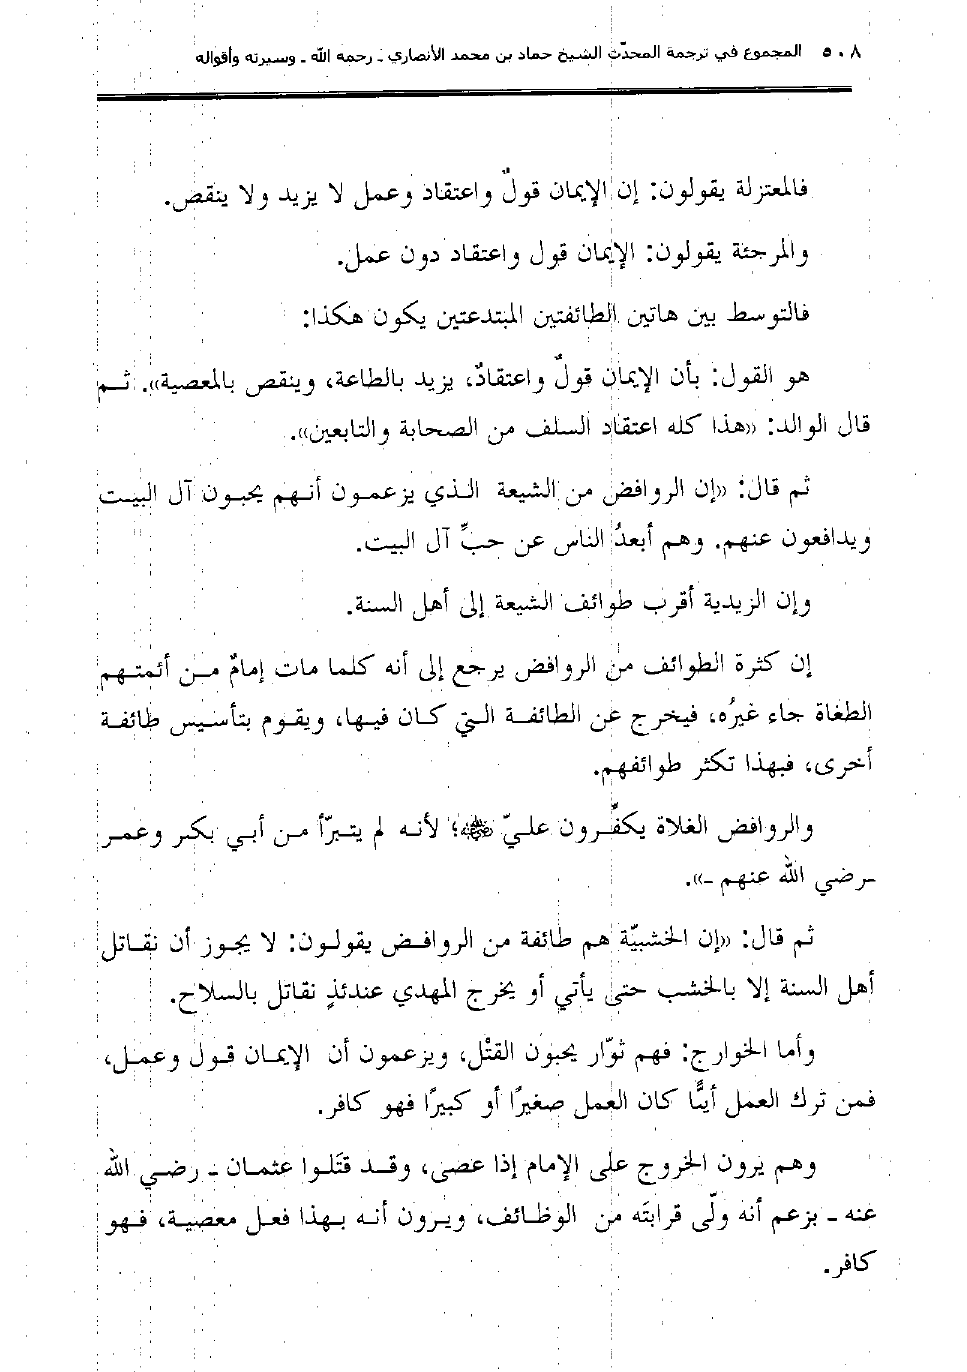 ٥٠٨ المجموع في ترجمة المحدّث الشيخ حماد بن محمد الأنصاري ـ رحمه الله ـ وسيرته وأقواله
فالمعتزلة يقولون: إن الإيمان قولٌ واعتقاد وعمل لا يزيد ولا ينقص.
والمرجئة يقولون: الإيمان قول واعتقاد دون عمل.
فالتوسط بين هاتين الطائفتين المبتدعتين يكون هكذا:
هو القول: بأن الإيمان قولٌ واعتقادٌ، يزيد بالطاعة، وينقص بالمعصية». ثم
قال الوالد: «هذا كله اعتقاد السلف من الصحابة والتابعين».
ثم قال: «إن الروافض من الشيعة الذي يزعمون أنهم يحبون آل البيت
ويدافعون عنهم. وهم أبعدُ الناس عن حبِّ آل البيت.
وإن الزيدية أقرب طوائف الشيعة إلى أهل السنة.
إن كثرة الطوائف من الروافض يرجع إلى أنه كلما مات إمامٌ من أئمتهم
الطغاة جاء غيرُه، فيخرج عن الطائفة التي كان فيها، ويقوم بتأسيس طائفة
أخرى، فبهذا تكثر طوائفهم.
والروافض الغلاة يكفِّرون عليّ ﷺ؛ لأنه لم يتبرّأ من أبي بكر وعمر
ـ رضي الله عنهم ـ».
ثم قال: «إن الخشبيّة هم طائفة من الروافض يقولون: لا يجوز أن نقاتل
أهل السنة إلا بالخشب حتى يأتي أو يخرج المهدي عندئذٍ نقاتل بالسلاح.
وأما الخوارج: فهم ثوّار يحبون القتْل، ويزعمون أن الإيمان قول وعمل،
فمن ترك العمل أيًّا كان العمل صغيرًا أو كبيرًا فهو كافر.
وهم يرون الخروج على الإمام إذا عصى، وقد قتَلوا عثمان ـ رضي الله
عنه ـ بزعم أنه ولّى قرابتَه من الوظائف، ويرون أنه بهذا فعل معصية، فهو
كافر.